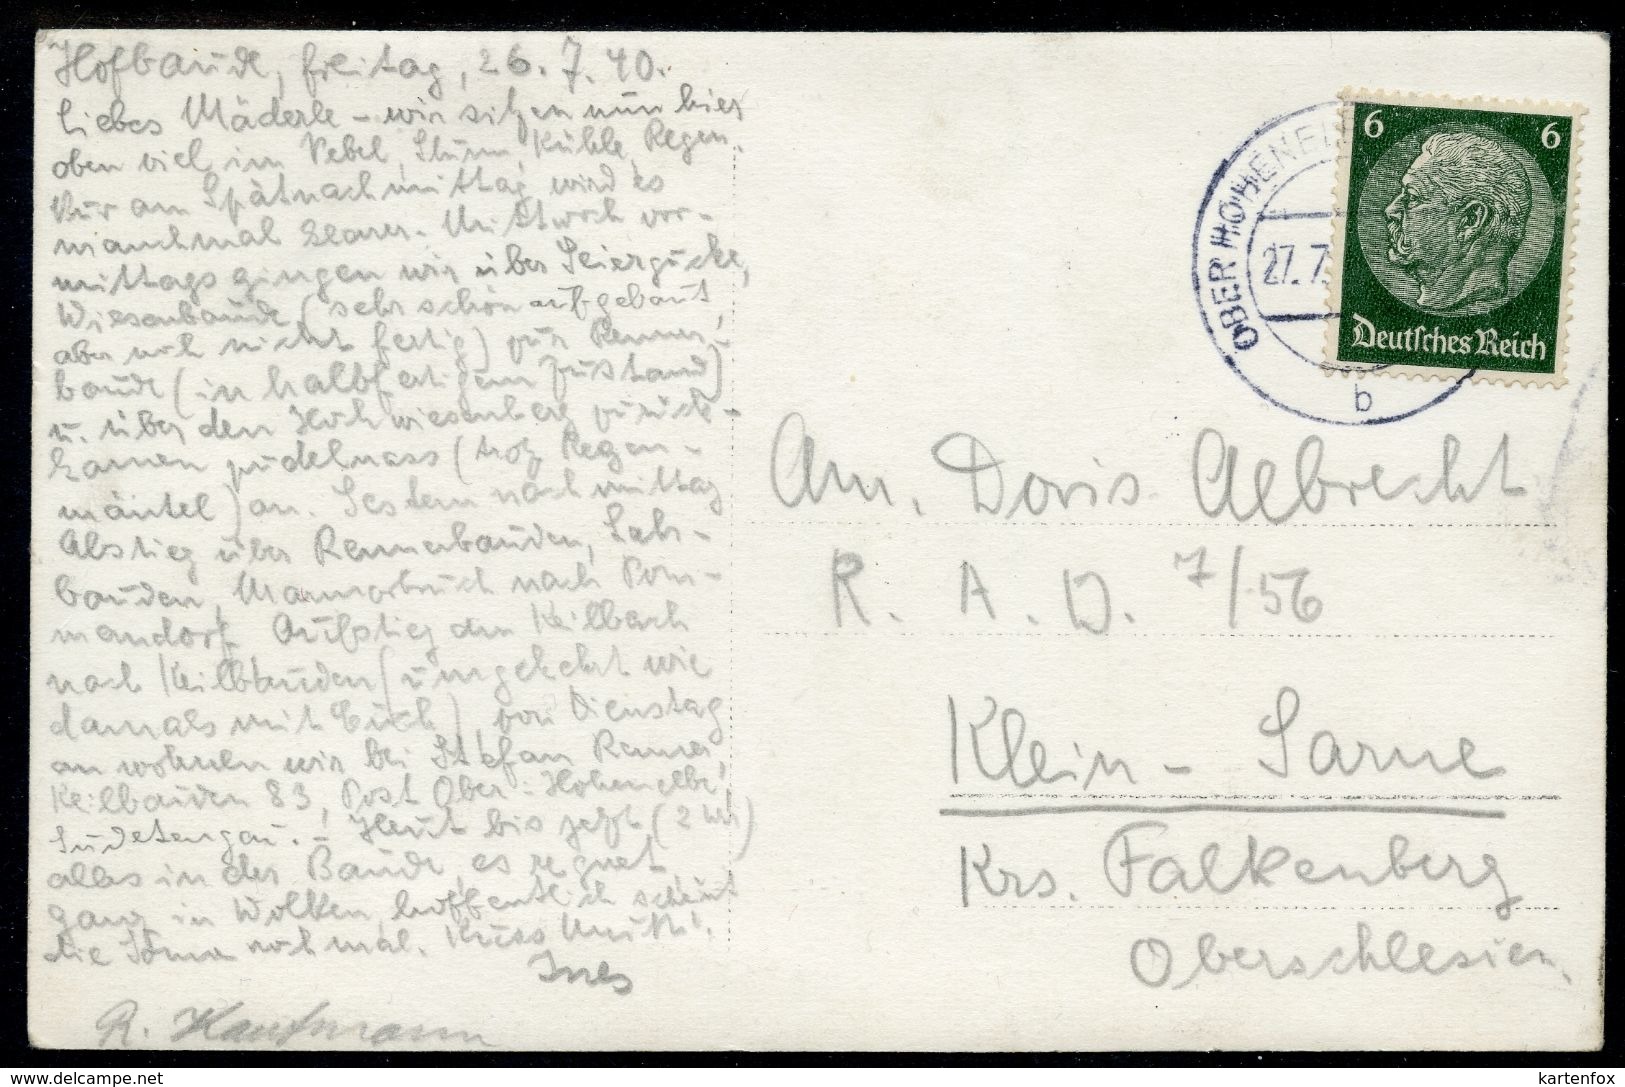 Hofbaude, Freitag, 26.7.40.
Liebes Mäderle – wir sitzen nun hier
oben viel im Nebel, Sturm, Kühle, Regen.
Nur am Spätnachmittag wird es
manchmal klarer. Mittwoch vor-
mittags gingen wir über Geiergucke,
Wiesenbaude (sehr schön aufgebaut,
aber noch nicht fertig) zur Renner-
baude (in halbfertigem Zustand)
u. über den Hochwiesenberg zurück –
kamen pudelnass (trotz Regen-
mäntel) an. Gestern nachmittag
Abstieg über Rennerbauden, Lahr-
bauden, Marmorbruch nach Pom-
mendorf. Aufstieg den Keilbach
nach Keilbauden (umgekehrt wie
damals mit Euch), von Dienstag
an wohnen wir bei Stefan Renner,
Keilbauden 83, Post Ober-Hohenelbe,
Sudetengau. – Heut bis jetzt (2 Uhr)
alles in der Baude, es regnet,
ganz in Wolken, hoffentlich scheint
die Sonne noch mal. Kuss Mutti!
Ines
R. Kaufmann
OBER HOHENEL
27.7.
b
6 6
Deutsches Reich
An. Doris Albrecht
R. A. D. 7/56
Klein-Sarne
Krs. Falkenberg
Oberschlesien.
© delcampe.net
kartenfox